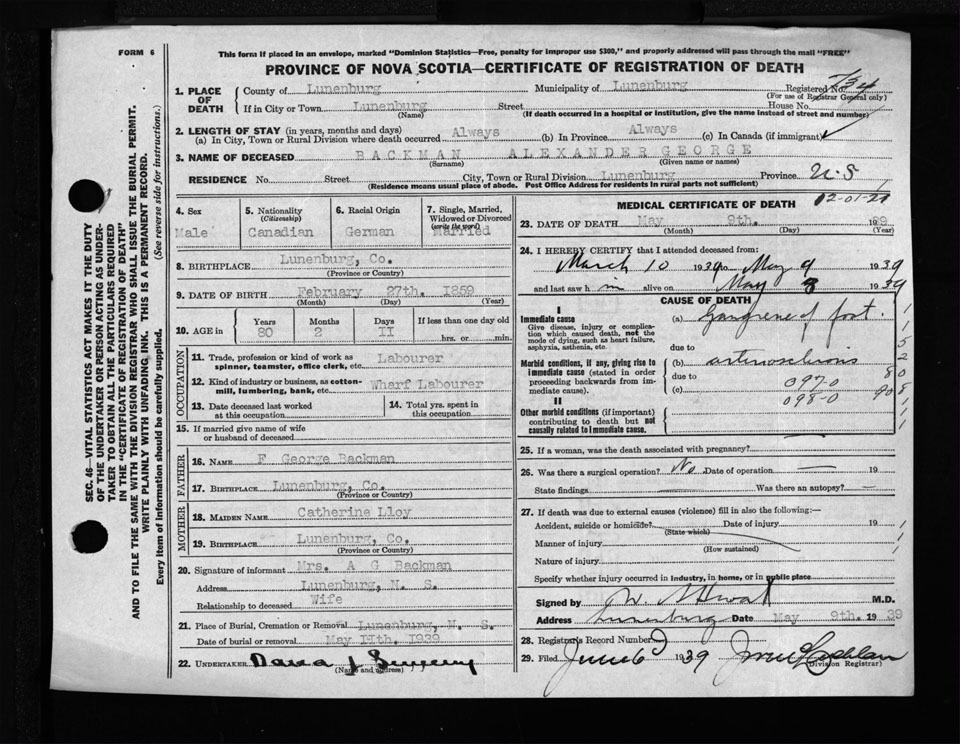 FORM 6
This form if placed in an envelope, marked "Dominion Statistics—Free, penalty for improper use $300," and properly addressed will pass through the mail "FREE"
PROVINCE OF NOVA SCOTIA—CERTIFICATE OF REGISTRATION OF DEATH
1. PLACE OF DEATH
County of Lunenburg Municipality of Lunenburg Registered No. 734
(For use of Registrar General only)
If in City or Town Lunenburg Street House No.
(Name) (If death occurred in a hospital or institution, give the name instead of street and number)
2. LENGTH OF STAY (in years, months and days)
(a) In City, Town or Rural Division where death occurred Always (b) In Province Always (c) In Canada (if immigrant)
3. NAME OF DECEASED BACKMAN ALEXANDER GEORGE
(Surname) (Given name or names)
RESIDENCE No. Street City, Town or Rural Division Lunenburg Province N.S
(Residence means usual place of abode. Post Office Address for residents in rural parts not sufficient)
4. Sex
Male
5. Nationality
(Citizenship)
Canadian
6. Racial Origin
German
7. Single, Married, Widowed or Divorced
(write the word)
Married
8. BIRTHPLACE Lunenburg, Co.
(Province or Country)
9. DATE OF BIRTH February 27th. 1859
(Month) (Day) (Year)
10. AGE in
Years Months Days If less than one day old
80 2 II hrs. or min.
OCCUPATION
11. Trade, profession or kind of work as spinner, teamster, office clerk, etc. Labourer
12. Kind of industry or business, as cotton-mill, lumbering, bank, etc. Wharf Labourer
13. Date deceased last worked at this occupation
14. Total yrs. spent in this occupation
15. If married give name of wife or husband of deceased
FATHER
16. NAME F George Backman
17. BIRTHPLACE Lunenburg, Co.
(Province or Country)
MOTHER
18. MAIDEN NAME Catherine Lloy
19. BIRTHPLACE Lunenburg, Co.
(Province or Country)
20. Signature of informant Mrs. A G Backman
Address Lunenburg, N. S.
Relationship to deceased Wife
21. Place of Burial, Cremation or Removal Lunenburg, N. S.
Date of burial or removal May IIth. I939
22. UNDERTAKER
(Name and address)
MEDICAL CERTIFICATE OF DEATH
23. DATE OF DEATH May 9th. 1939
(Month) (Day) (Year)
24. I HEREBY CERTIFY that I attended deceased from:
March 10 1939 to May 9 1939
and last saw h m alive on May 8 1939
CAUSE OF DEATH
I
Immediate cause
Give disease, injury or complication which caused death, not the mode of dying, such as heart failure, asphyxia, asthenia, etc.
(a) Gangrene of foot
due to
Morbid conditions, if any, giving rise to immediate cause (stated in order proceeding backwards from immediate cause).
(b) arteriosclerosis
due to
(c) 097-0
098-0
II
Other morbid conditions (if important) contributing to death but not causally related to immediate cause.
25. If a woman, was the death associated with pregnancy?
26. Was there a surgical operation? No Date of operation — 19
State findings Was there an autopsy? —
27. If death was due to external causes (violence) fill in also the following:—
Accident, suicide or homicide? Date of injury 19
(State which)
Manner of injury
(How sustained)
Nature of injury
Specify whether injury occurred in industry, in home, or in public place
Signed by M.D.
Address Lunenburg Date May 9th. 1939
28. Registrar's Record Number
29. Filed June 6 1939
Division Registrar
SEC. 46—VITAL STATISTICS ACT MAKES IT THE DUTY
OF THE UNDERTAKER OR PERSON ACTING AS UNDER-
TAKER TO OBTAIN ALL THE PARTICULARS REQUIRED
IN THE "CERTIFICATE OF REGISTRATION OF DEATH"
AND TO FILE THE SAME WITH THE DIVISION REGISTRAR WHO SHALL ISSUE THE BURIAL PERMIT.
WRITE PLAINLY WITH UNFADING INK. THIS IS A PERMANENT RECORD.
Every item of information should be carefully supplied. (See reverse side for instructions.)